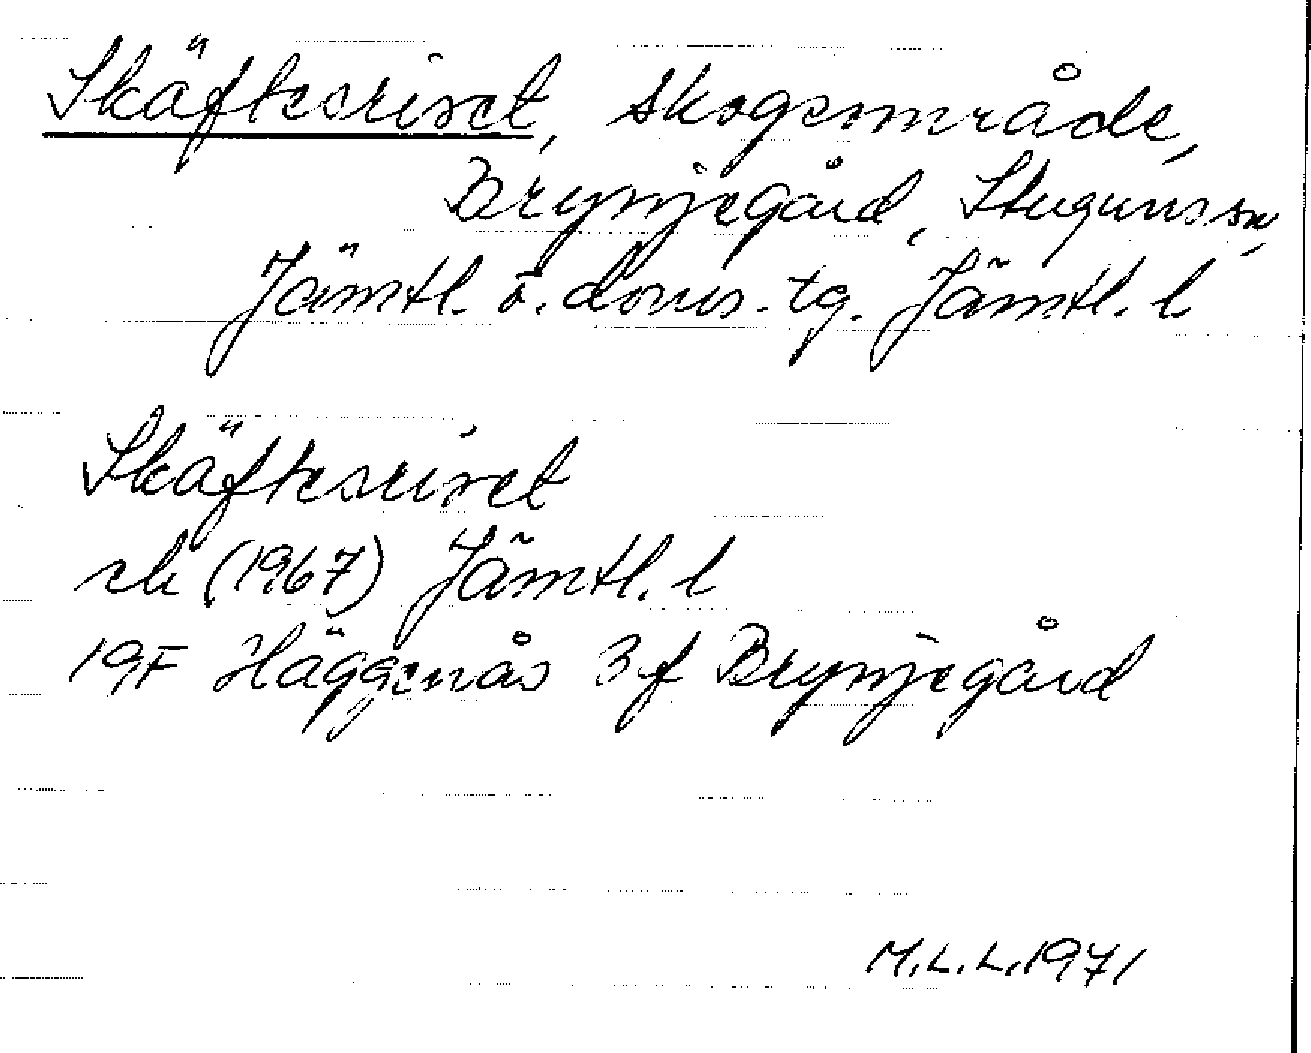 Skäftesriset, skogsområde,
Brynjegård, Stuguns sn,
Jämtl. ö. doms. tg. Jämtl. l
Skäftesriset
ek (1967) Jämtl. l
19F Häggenås 3f Brynjegård
M.L.L. 1971